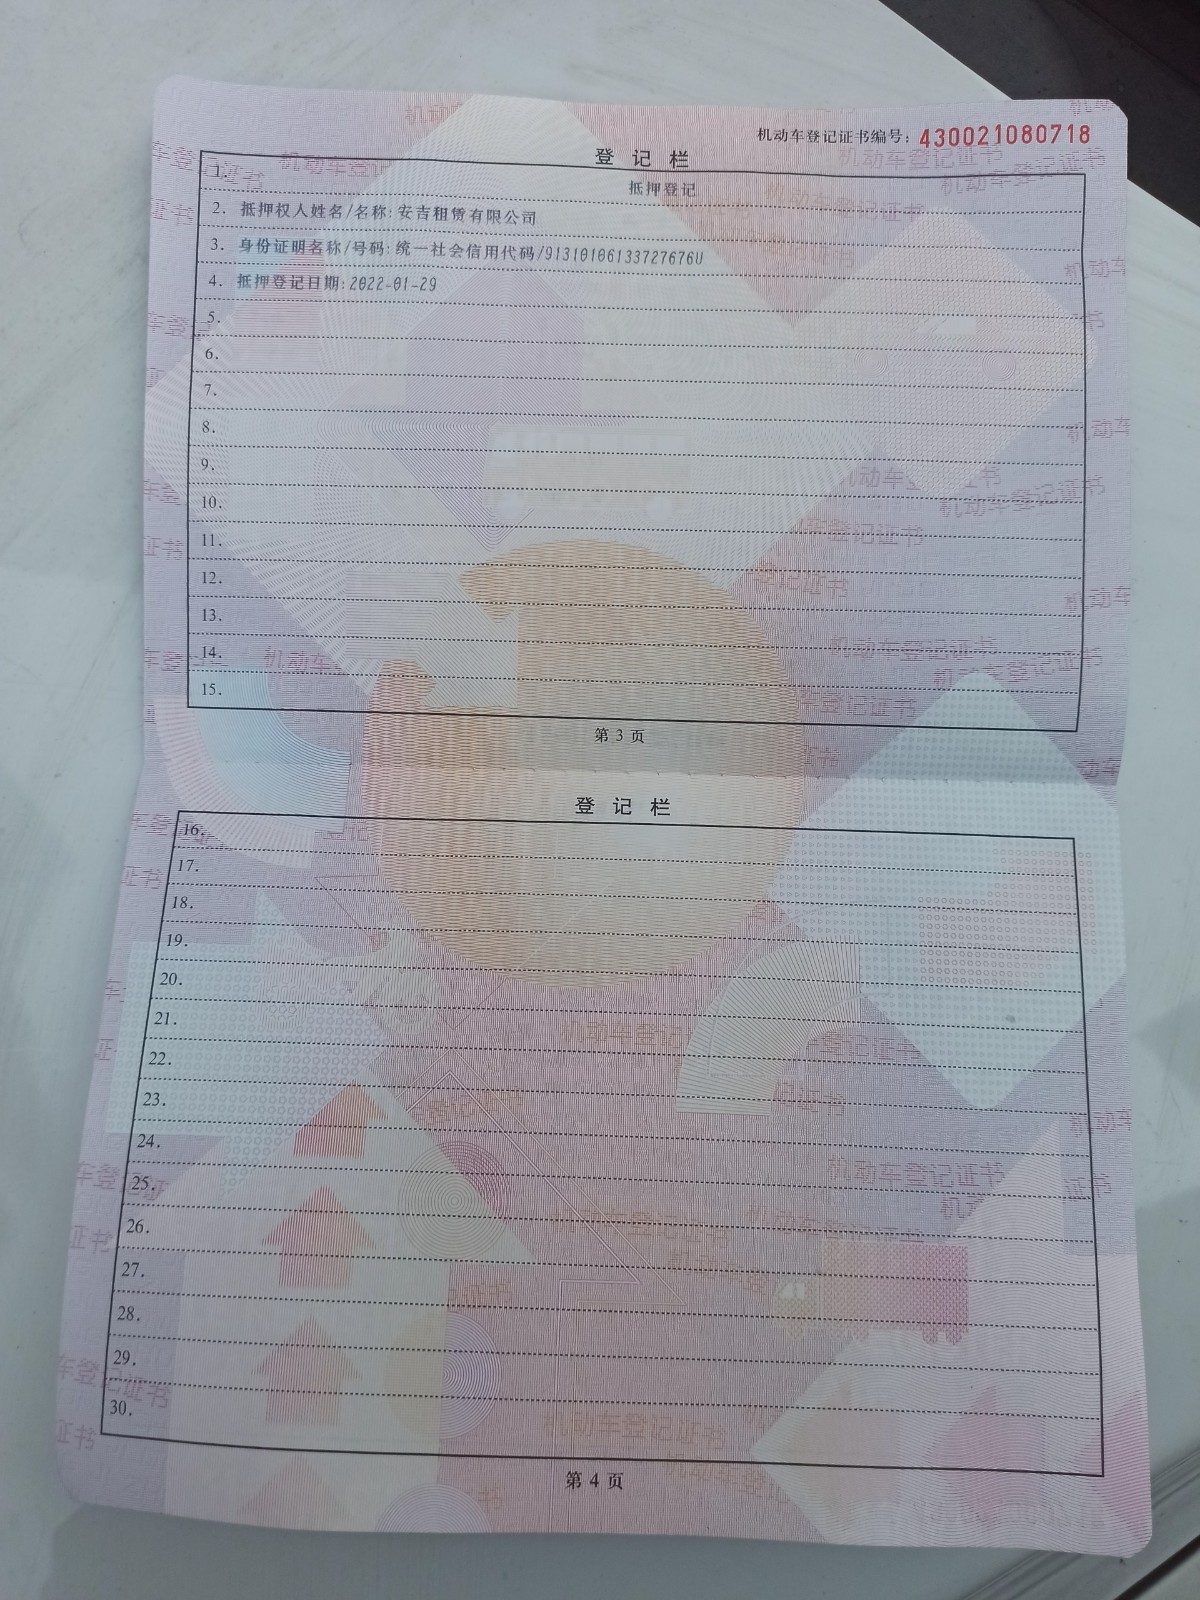 机动车登记证书编号：430021080718
登记栏
1.
抵押登记
2. 抵押权人姓名/名称:安吉租赁有限公司
3. 身份证明名称/号码:统一社会信用代码/91310106133727676U
4. 抵押登记日期:2022-01-29
5.
6.
7.
8.
9.
10.
11.
12.
13.
14.
15.
第 3 页
登记栏
16.
17.
18.
19.
20.
21.
22.
23.
24.
25.
26.
27.
28.
29.
30.
第 4 页